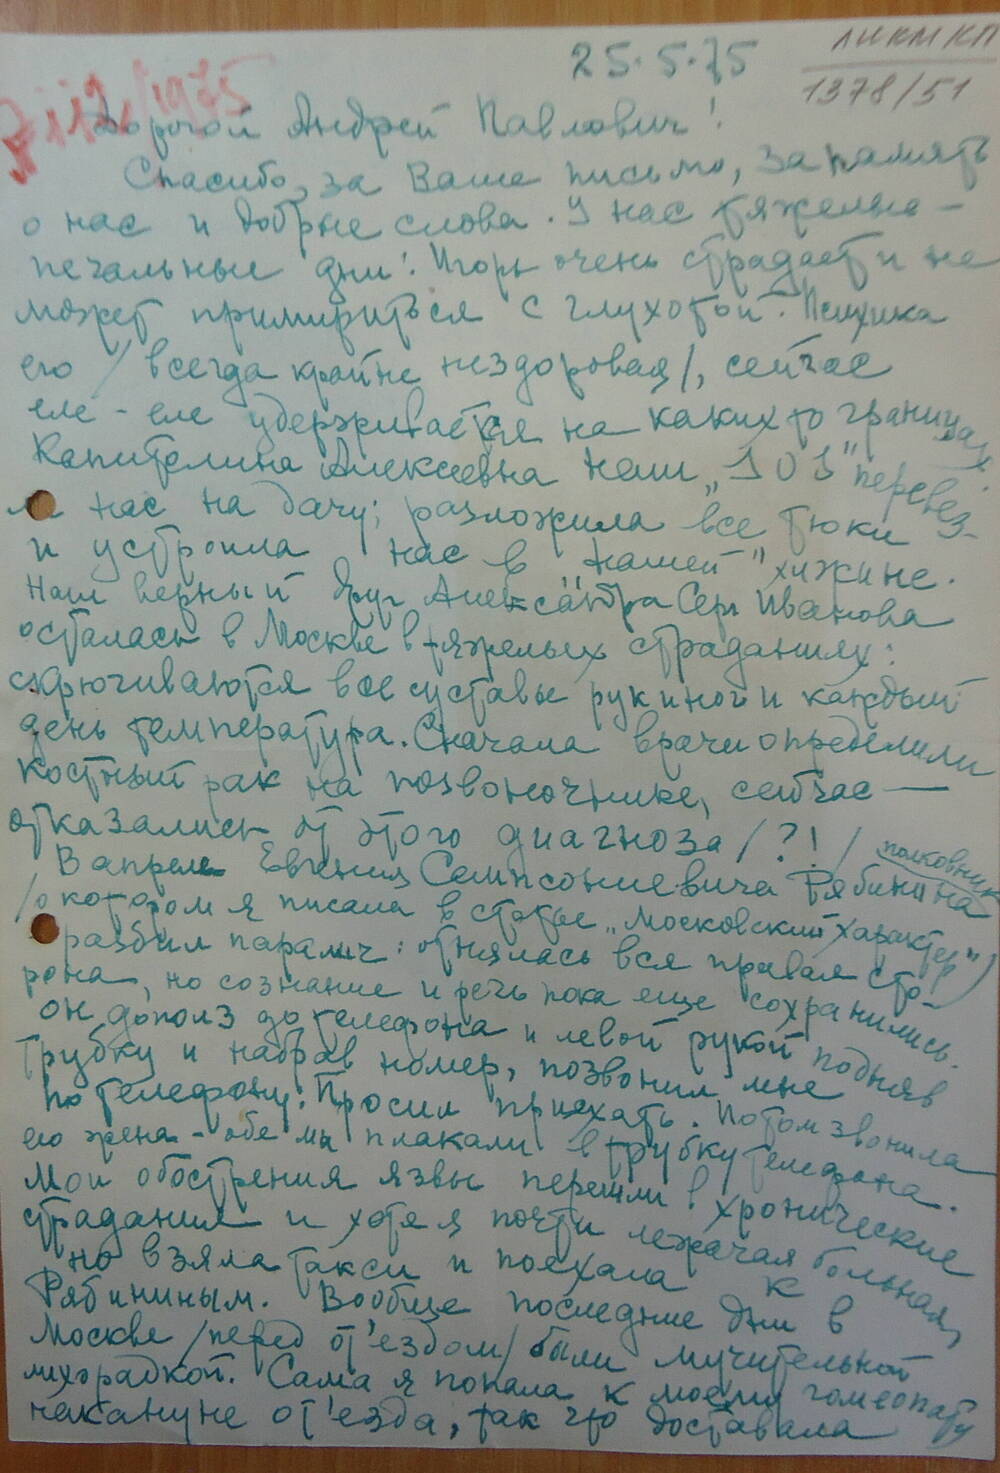 25.5.75
ЛНКМ КП
1378/51
/1975
Дорогой Андрей Павлович!
Спасибо, за Ваше письмо, за память
о нас и добрые слова. У нас тяжелые –
печальные дни! Игорь очень страдает и не
может примириться с глухотой. Психика
его /всегда крайне нездоровая/, сейчас
еле-еле удерживается на каких то границах.
Капитолина Алексеевна наш перевез-
ла нас на дачу; разложила все тюки
и устроила нас в нашей "хижине".
Наш верный друг Александра Сер Иванова
осталась в Москве в тяжелых страданиях:
скрючиваются все суставы рук и ног и каждый
день температура. Сначала врачи определили
костный рак на позвоночнике, сейчас —
отказались от этого диагноза /?!/
В апреле Евгения Семпсониевича Рябинина
полковник
/о котором я писала в статье „Московский характер")
разбил паралич: отнялась вся правая сто-
рона, но сознание и речь пока еще сохранились.
Он дополз до телефона и левой рукой подняв
трубку и набрав номер, позвонил мне
по телефону. Просил приехать. Потом звонила
его жена – обе мы плакали в трубку телефона.
Мои обострения язвы перешли в хронические
страдания и хотя я почти лежачая больная,
но взяла такси и поехала к
Рябининым. Вообще последние дни в
Москве /перед от'ездом/ были мучительной
лихорадкой. Сама я попала к моему гомеопату
накануне от'езда, так что доставала